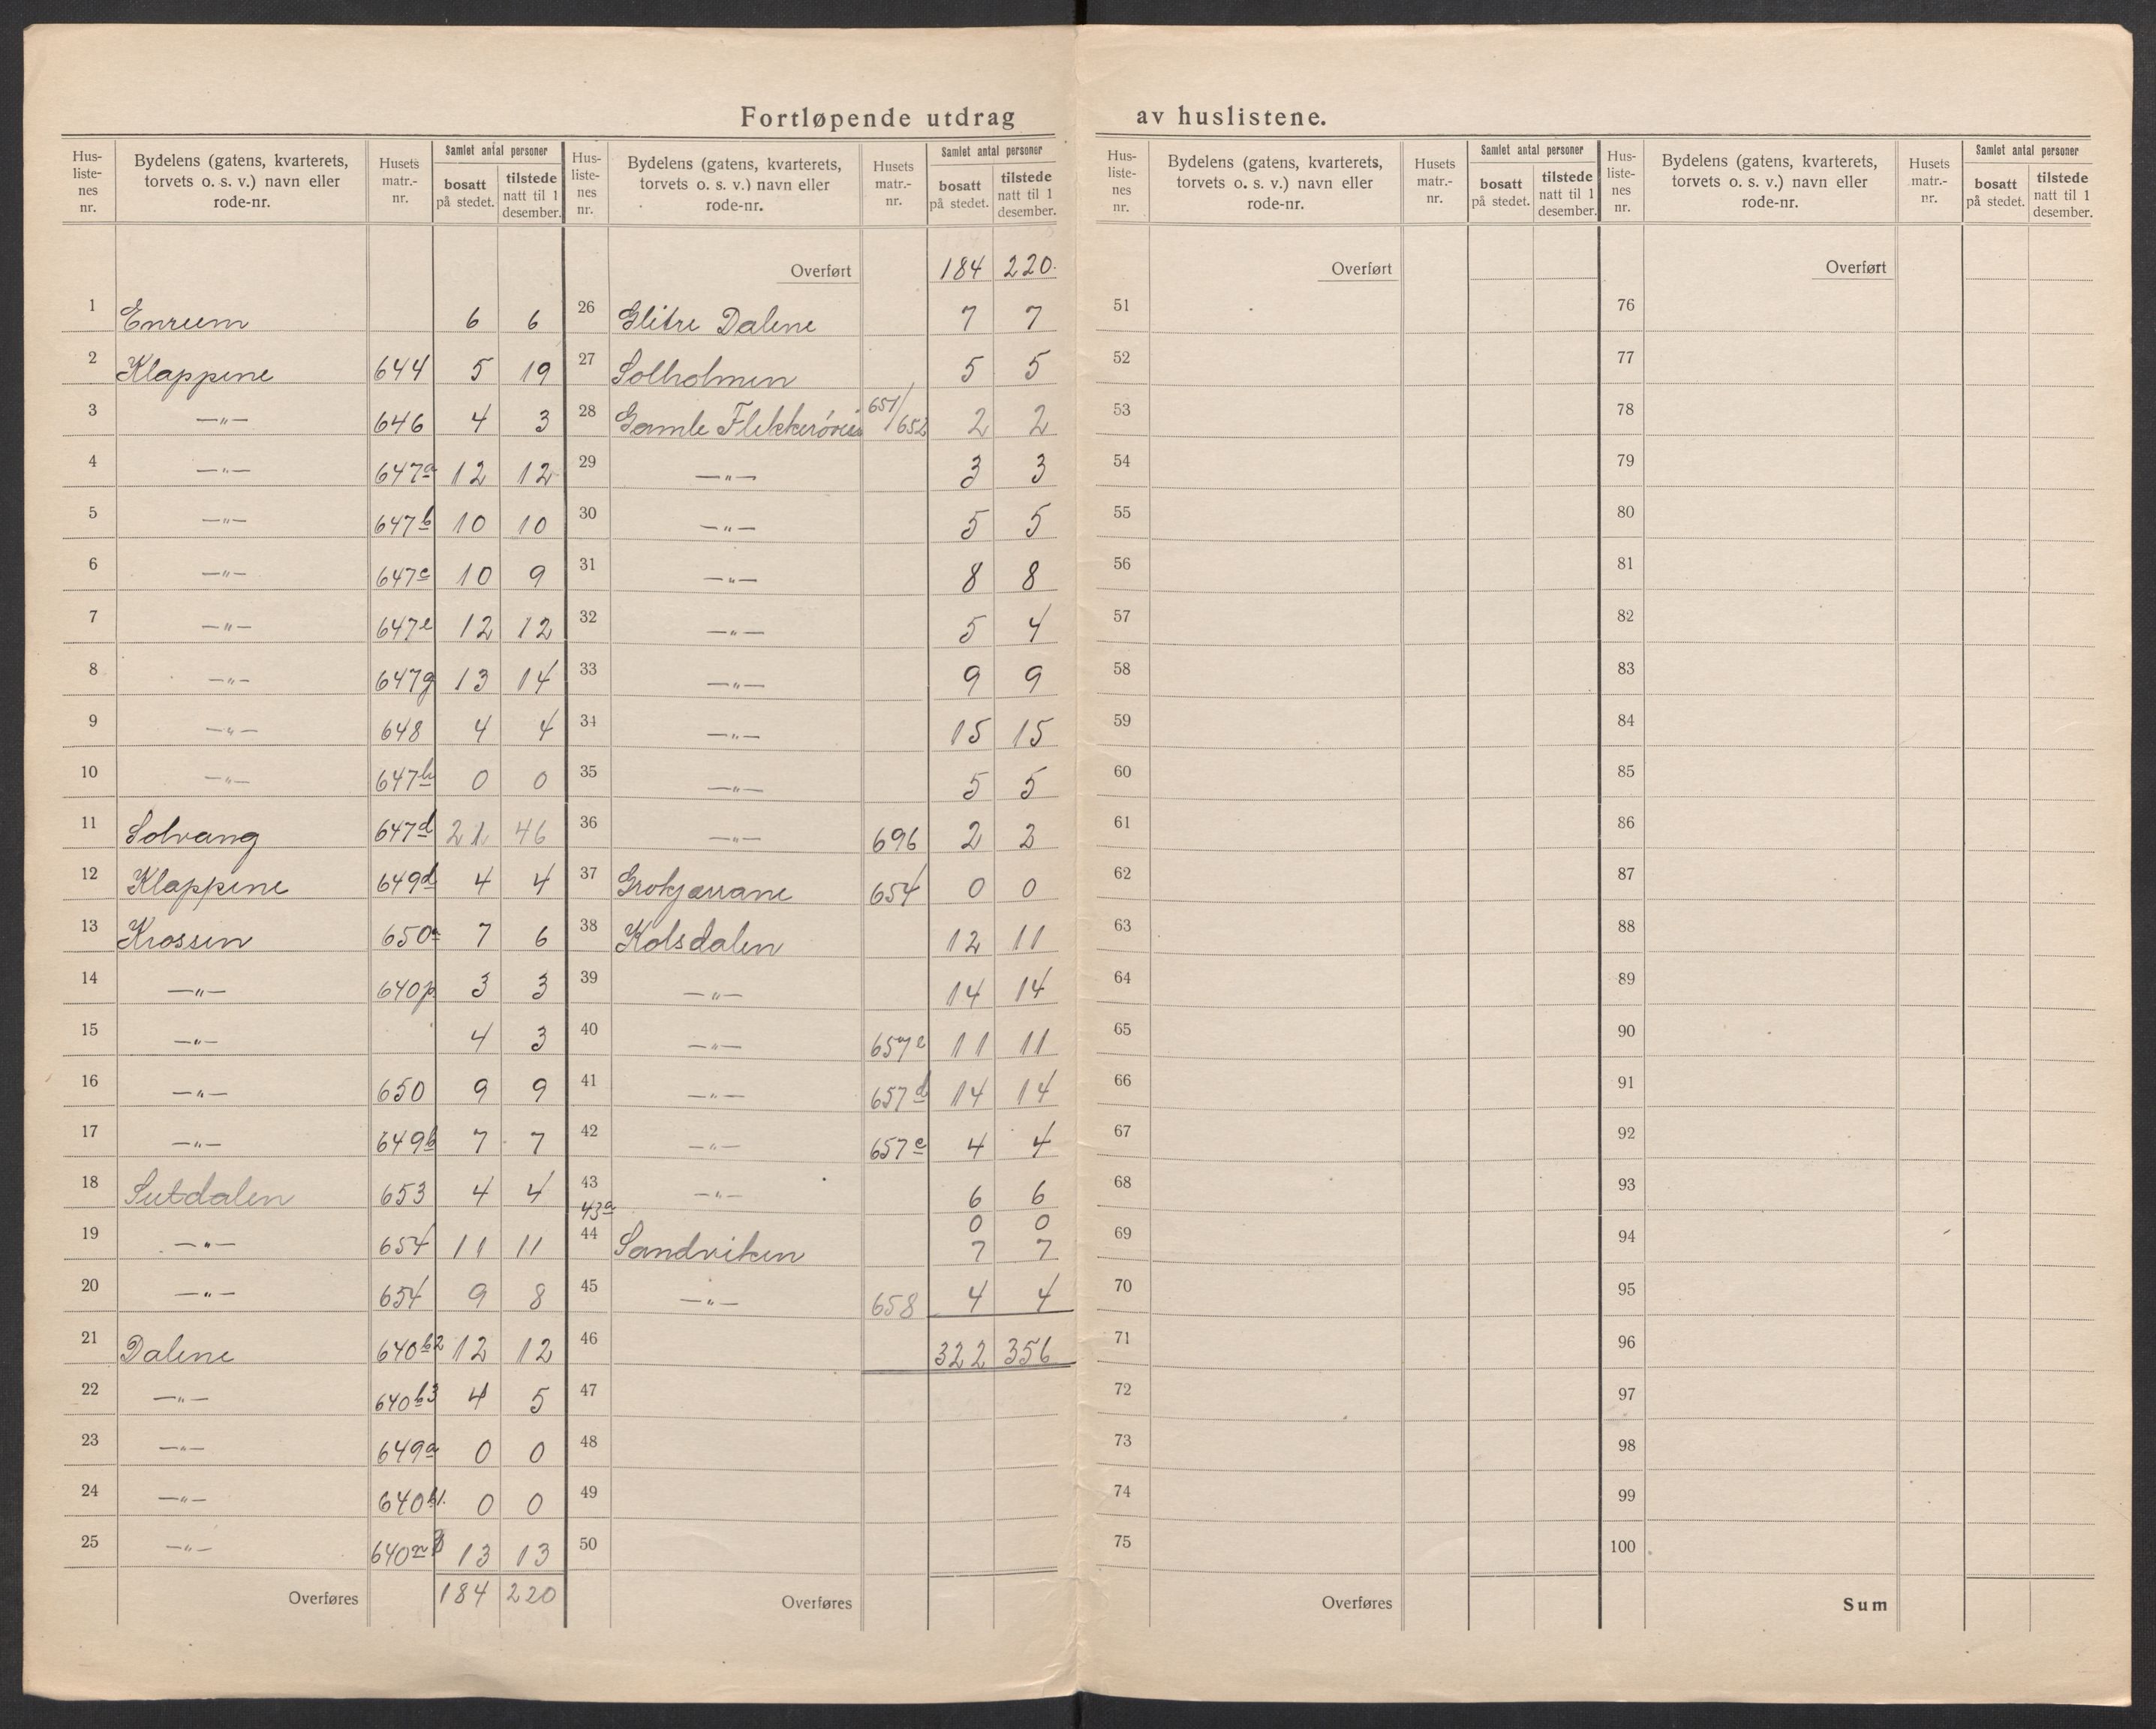 Fortløpende utdrag av huslistene.
Hus-listenes nr. | Bydelens (gatens, kvarterets, torvets o. s. v.) navn eller rode-nr. | Husets matr.-nr. | Samlet antal personer | bosatt på stedet. | tilstede natt til 1 desember.
1 Enrum 6 6
2 Klappene 644 5 19
3 —"— 646 4 3
4 —"— 647a 12 12
5 —"— 647b 10 10
6 —"— 647c 10 9
7 —"— 647e 12 12
8 —"— 647g 13 14
9 —"— 648 4 4
10 —"— 647h 0 0
11 Solvang 647d 21 46
12 Klappene 649d 4 4
13 Krossen 650a 7 6
14 —"— 640p 3 3
15 —"— 4 3
16 —"— 650 9 9
17 —"— 649b 7 7
18 Sutdalen 653 4 4
19 —"— 654 11 11
20 —"— 654 9 8
21 Dalene 640b2 12 12
22 —"— 640b3 4 5
23 —"— 649a 0 0
24 —"— 640b1. 0 0
25 —"— 13 13
Overføres 184 220
Hus-listenes nr. | Bydelens (gatens, kvarterets, torvets o. s. v.) navn eller rode-nr. | Husets matr.-nr. | Samlet antal personer | bosatt på stedet. | tilstede natt til 1 desember.
Overført 184 220.
26 Glitre Dalene 7 7
27 Solholmen 5 5
28 Gamle Flekkerøveien 651/652 2 2
29 —"— 3 3
30 —"— 5 5
31 —"— 8 8
32 —"— 5 4
33 —"— 9 9
34 —"— 15 15
35 —"— 5 5
36 —"— 696 2 2
37 Grokjærrane 654 0 0
38 Kolsdalen 12 11
39 —"— 14 14
40 —"— 657c 11 11
41 —"— 657d 14 14
42 —"— 657e 4 4
43 —"— 6 6
43a 0 0
44 Sandviken 7 7
45 —"— 658 4 4
46 322 356
47
48
49
50
Overføres
Hus-listenes nr. | Bydelens (gatens, kvarterets, torvets o. s. v.) navn eller rode-nr. | Husets matr.-nr. | Samlet antal personer | bosatt på stedet. | tilstede natt til 1 desember.
Overført
51
52
53
54
55
56
57
58
59
60
61
62
63
64
65
66
67
68
69
70
71
72
73
74
75
Overføres
Hus-listenes nr. | Bydelens (gatens, kvarterets, torvets o. s. v.) navn eller rode-nr. | Husets matr.-nr. | Samlet antal personer | bosatt på stedet. | tilstede natt til 1 desember.
Overført
76
77
78
79
80
81
82
83
84
85
86
87
88
89
90
91
92
93
94
95
96
97
98
99
100
Sum